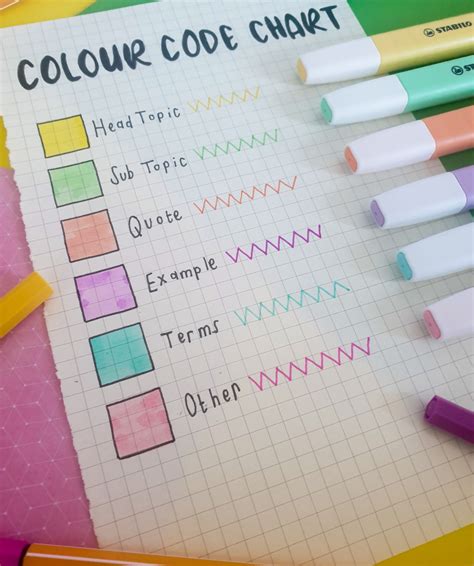 COLOUR CODE CHART
STABILO
STABILO
Head Topic
Sub Topic
Quote
Example
Terms
Other